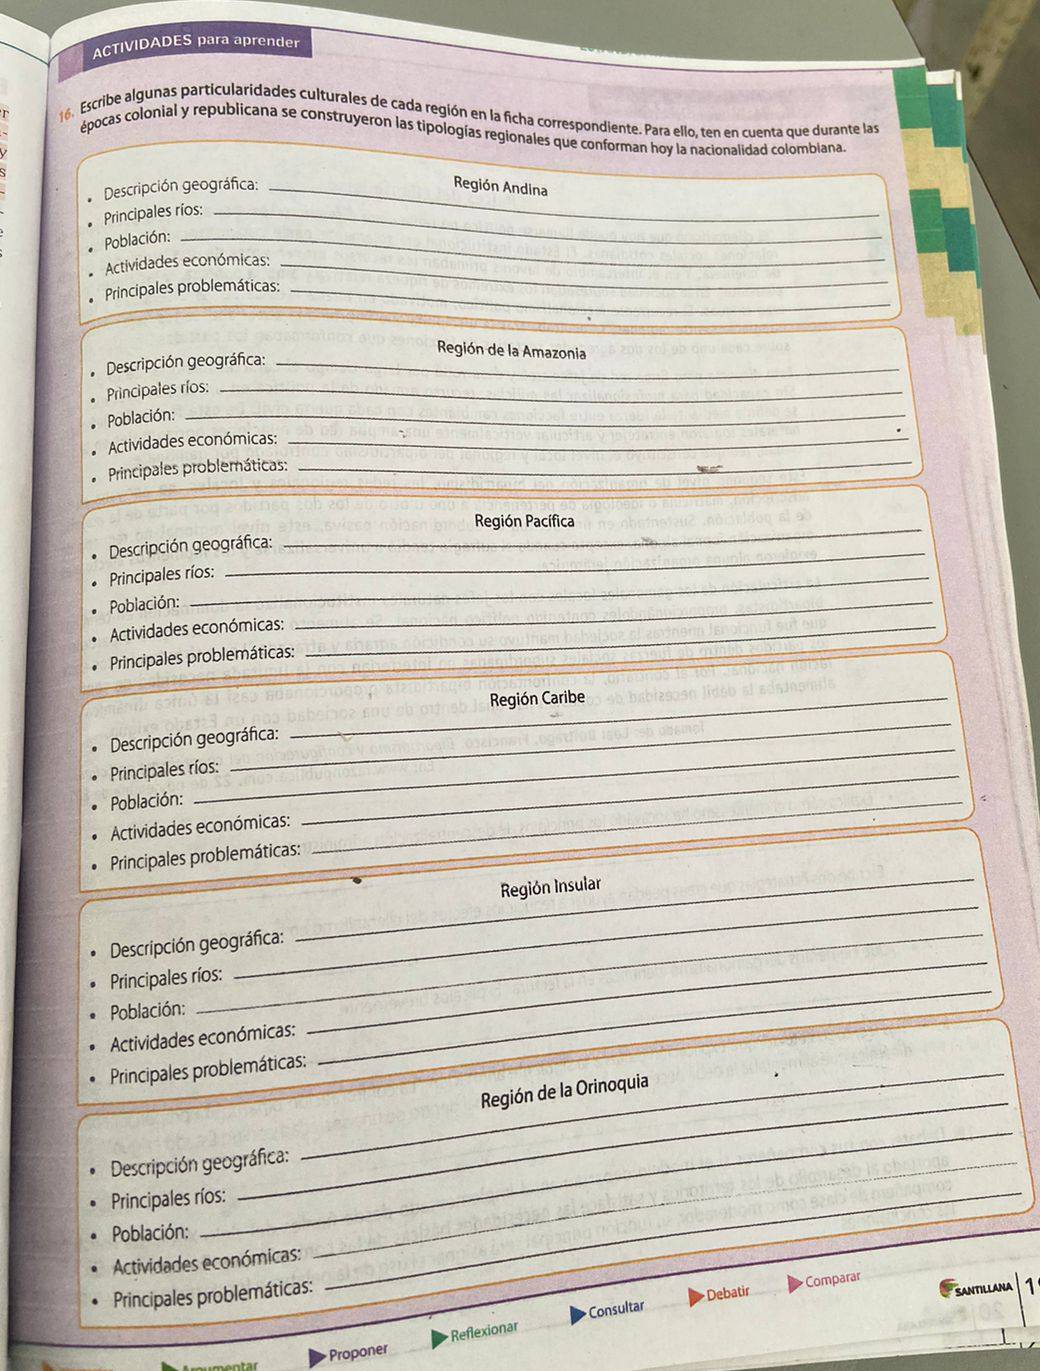 ACTIVIDADES para aprender
16. Escribe algunas particularidades culturales de cada región en la ficha correspondiente. Para ello, ten en cuenta que durante las
épocas colonial y republicana se construyeron las tipologías regionales que conforman hoy la nacionalidad colombiana.
Región Andina
• Descripción geográfica:
• Principales ríos:
• Población:
• Actividades económicas:
• Principales problemáticas:
Región de la Amazonia
• Descripción geográfica:
• Principales ríos:
• Población:
• Actividades económicas:
• Principales problemáticas:
Región Pacífica
• Descripción geográfica:
• Principales ríos:
• Población:
• Actividades económicas:
• Principales problemáticas:
Región Caribe
• Descripción geográfica:
• Principales ríos:
• Población:
• Actividades económicas:
• Principales problemáticas:
Región Insular
• Descripción geográfica:
• Principales ríos:
• Población:
• Actividades económicas:
• Principales problemáticas:
Región de la Orinoquia
• Descripción geográfica:
• Principales ríos:
• Población:
• Actividades económicas:
• Principales problemáticas:
Proponer
Reflexionar
Consultar
Debatir
Comparar
SANTILLANA